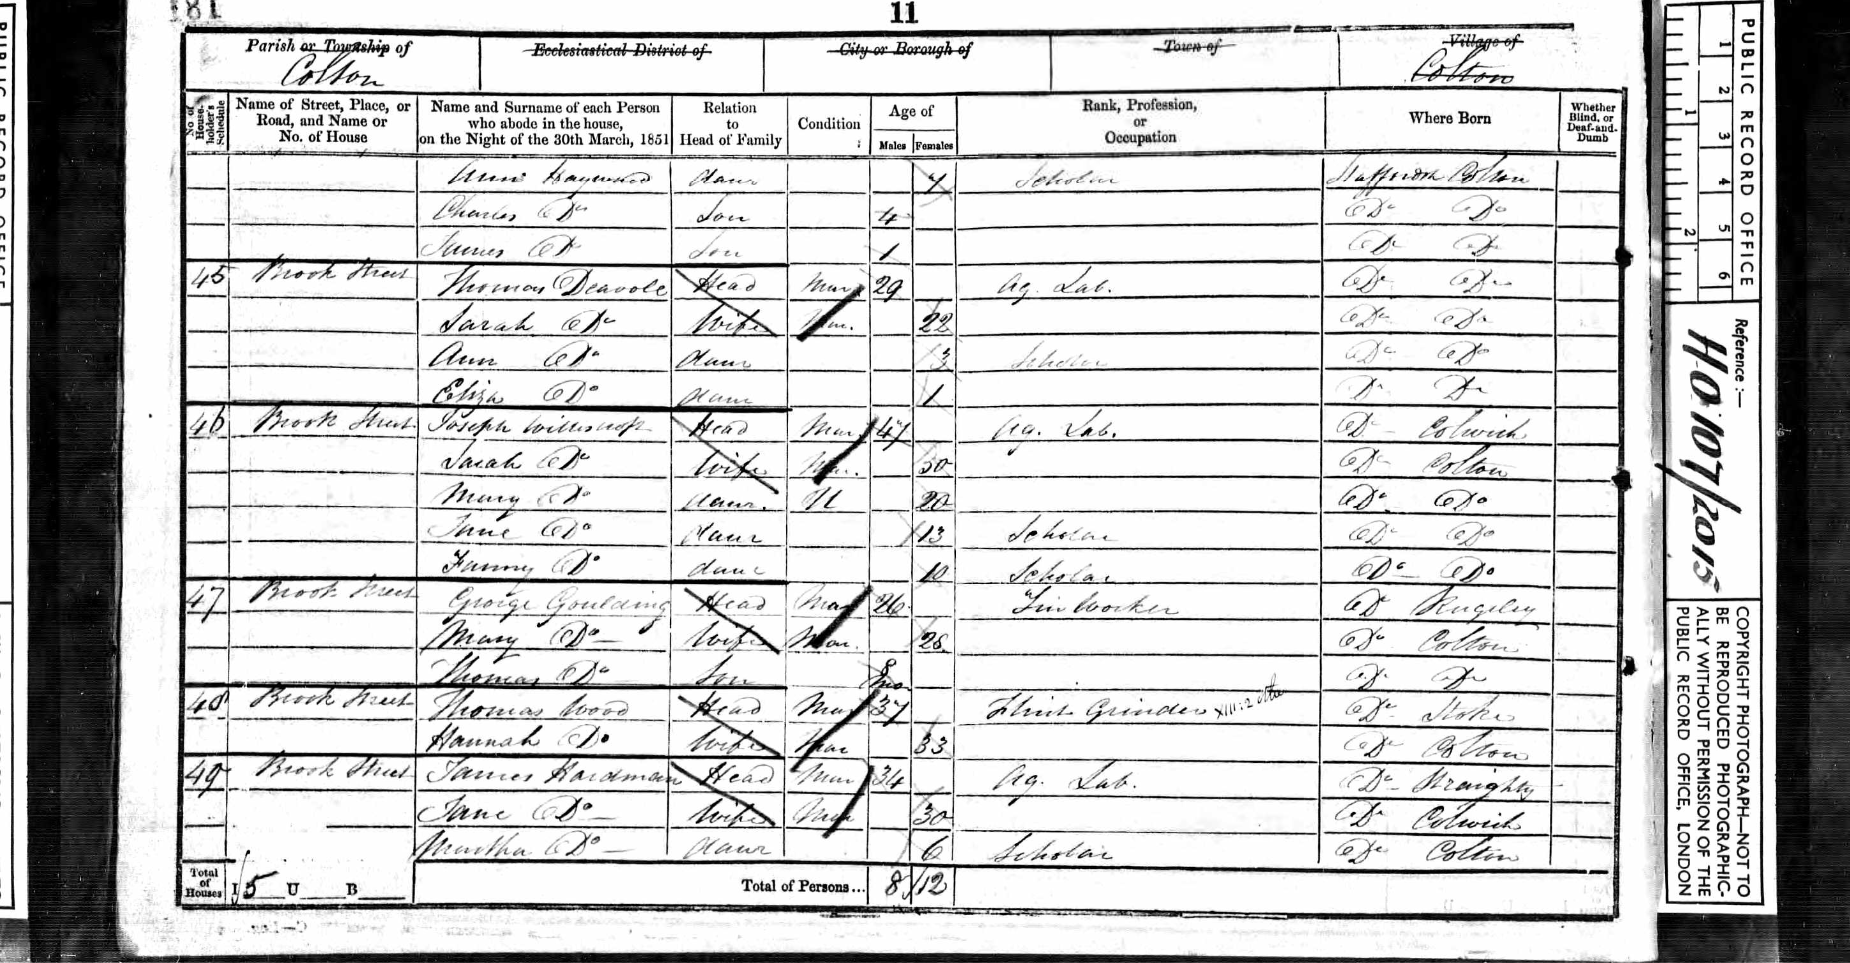 181
11
Parish or Township of Ecclesiastical District of City or Borough of Town of Village of
Colton Colton
No. of House-holder's Schedule Name of Street, Place, or Road, and Name or No. of House Name and Surname of each Person who abode in the house, on the Night of the 30th March, 1851 Relation to Head of Family Condition Age of Males Females Rank, Profession, or Occupation Where Born Whether Blind, or Deaf-and-Dumb
Ann Haywood daur 7 Scholar Staffordsh Colton
Charles Do Son 4 Do Do
James Do Son 1 Do Do
45 Brook Street Thomas Deavole Head Mar 29 Ag. Lab. Do Do
Sarah Do Wife Mar. 22 Do Do
Ann Do daur 3 Scholar Do Do
Eliza Do daur 1 Do Do
46 Brook Street Joseph Head Mar 47 Ag. Lab. Do Colwich
Sarah Do Wife Mar. 50 Do Colton
Mary Do daur. U 20 Do Do
Jane Do daur 13 Scholar Do Do
Fanny Do daur 10 Scholar Do Do
47 Brook Street George Goulding Head Mar 26 Tin Worker Do Rugeley
Mary Do Wife Mar. 28 Do Colton
Thomas Do Son 8 mo Do Do
48 Brook Street Thomas Wood Head Mar 37 Flint Grinder Do Stoke
Hannah Do Wife Mar 33 Do Colton
49 Brook Street James Hardman Head Mar 34 Ag. Lab. Do
Jane Do Wife Mar 30 Do Colwich
Martha Do daur 6 Scholar Do Colton
Total of Houses I 5 U B Total of Persons... 8 12
PUBLIC RECORD OFFICE
1 2 3 4 5 6
1 2
Reference :—
HO 107/2015
COPYRIGHT PHOTOGRAPH—NOT TO BE REPRODUCED PHOTOGRAPHIC-
ALLY WITHOUT PERMISSION OF THE
PUBLIC RECORD OFFICE, LONDON